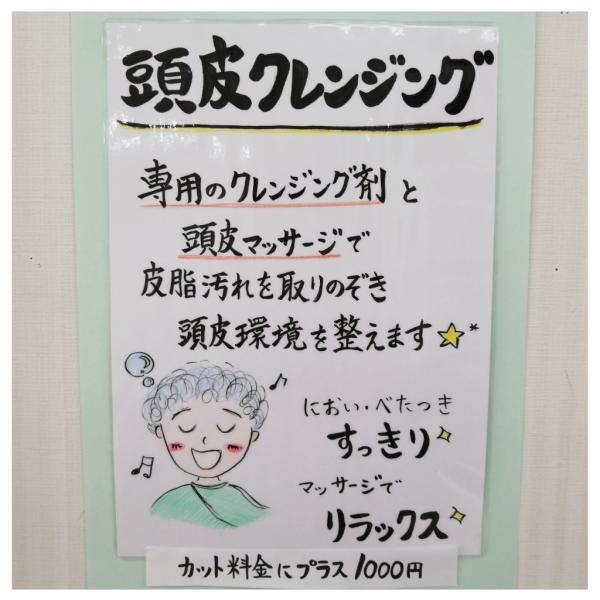 頭皮クレンジング
専用のクレンジング剤と
頭皮マッサージで
皮脂汚れを取りのぞき
頭皮環境を整えます☆*
におい・べたつき
すっきり
マッサージで
リラックス
カット料金にプラス1000円